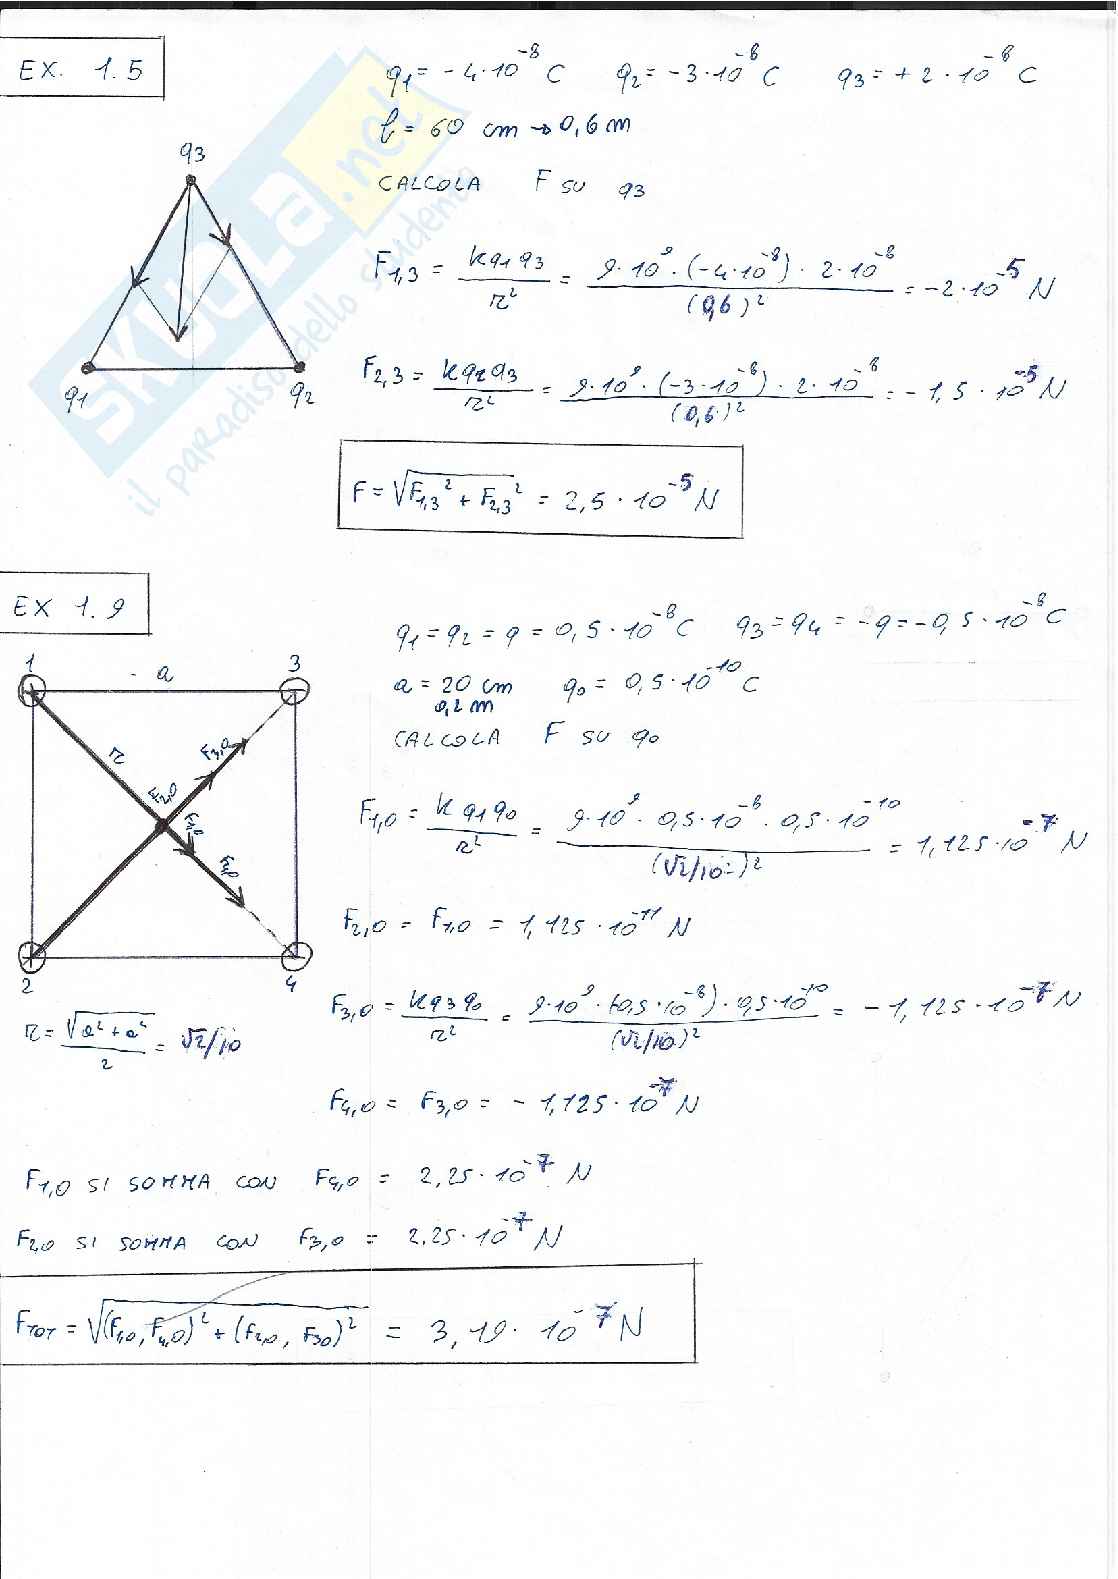 EX. 1.5
q1 = -4·10^-8 C q2 = -3·10^-8 C q3 = +2·10^-8 C
l = 60 cm → 0,6 m
CALCOLA F SU q3
q3
q1 q2
F1,3 = kq1q3/r² = 9·10^9·(-4·10^-8)·2·10^-8/(0,6)² = -2·10^-5 N
F2,3 = kq2q3/r² = 9·10^9·(-3·10^-8)·2·10^-8/(0,6)² = -1,5·10^-5 N
F = √(F1,3² + F2,3²) = 2,5·10^-5 N
SKUOLA.net
il paradiso dello studente
EX 1.9
q1 = q2 = q = 0,5·10^-8 C q3 = q4 = -q = -0,5·10^-8 C
a = 20 cm q0 = 0,5·10^-10 C
0,2 m
CALCOLA F SU q0
1 a 3
r F3,0
F2,0
F1,0
F4,0
2 4
r = √(a²+a²)/2 = √2/10
F1,0 = kq1q0/r² = 9·10^9·0,5·10^-8·0,5·10^-10/(√2/10)² = 1,125·10^-7 N
F2,0 = F1,0 = 1,125·10^-11 N
F3,0 = kq3q0/r² = 9·10^9·(-0,5·10^-8)·0,5·10^-10/(√2/10)² = -1,125·10^-7 N
F4,0 = F3,0 = -1,125·10^-7 N
F1,0 SI SOMMA CON F4,0 = 2,25·10^-7 N
F2,0 SI SOMMA CON F3,0 = 2,25·10^-7 N
FTOT = √((F1,0, F4,0)² + (F2,0, F3,0)²) = 3,19·10^-7 N